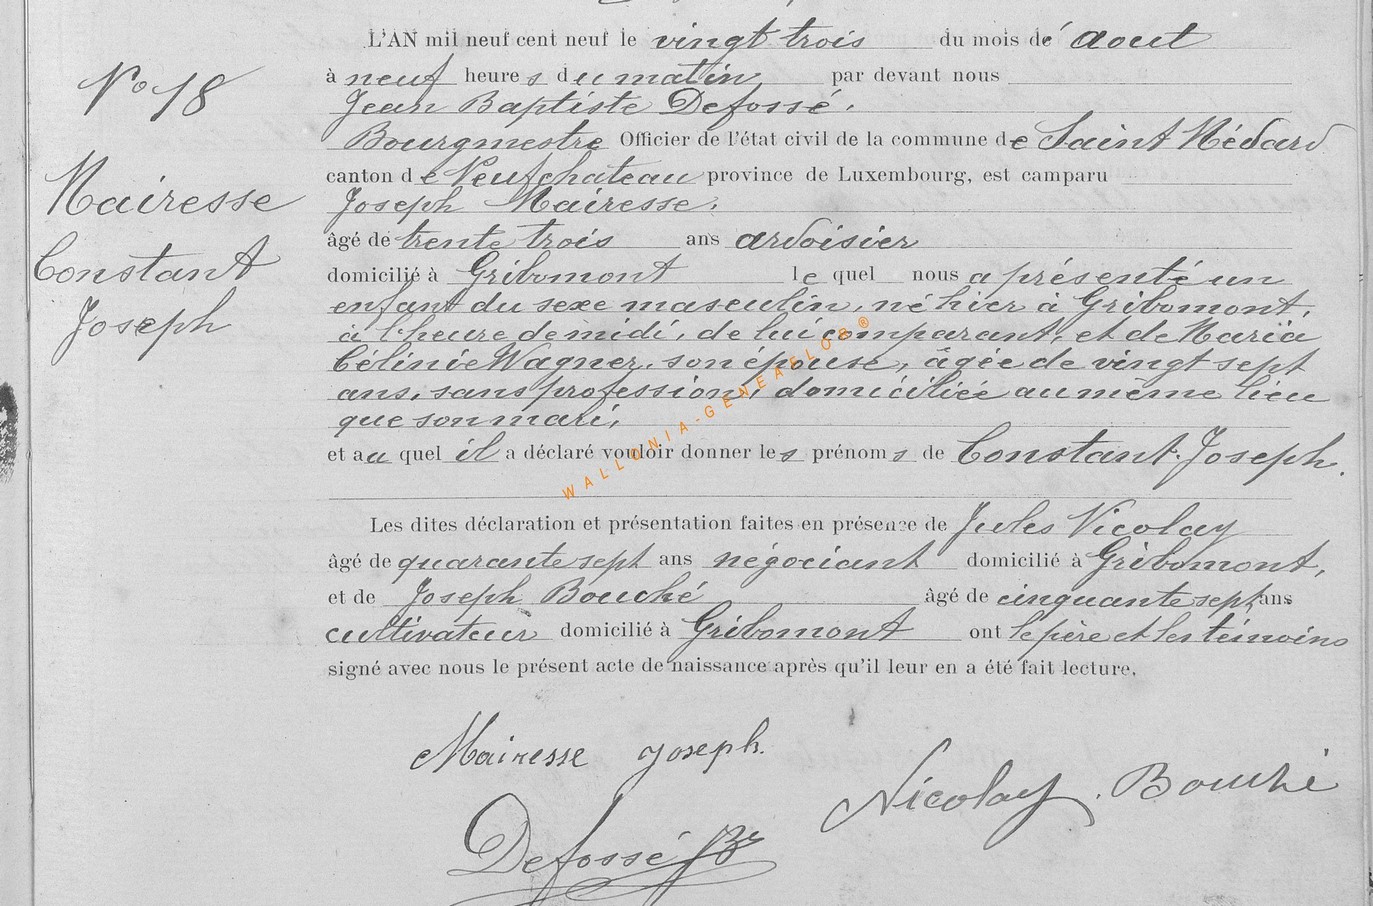 N° 18
Mairesse
Constant
Joseph
L'AN mil neuf cent neuf le vingt trois du mois de aout
à neuf heures du matin par devant nous
Jean Baptiste Defossé.
Bourgmestre Officier de l'état civil de la commune de Saint Médard
canton de Neufchateau province de Luxembourg, est camparu
Joseph Mairesse.
âgé de trente trois ans ardoisier
domicilié à Gribomont lequel nous a présenté un
enfant du sexe masculin, né hier à Gribomont,
à l'heure de midi, de lui comparant, et de Maria
Célinie Wagner, son épouse, âgée de vingt sept
ans, sans profession, domiciliée au même lieu
que son mari,
et auquel il a déclaré vouloir donner les prénoms de Constant Joseph.
Les dites déclaration et présentation faites en présence de Jules Nicolay
âgé de quarante sept ans négociant domicilié à Gribomont,
et de Joseph Bouché âgé de cinquante sept ans
cultivateur domicilié à Gribomont ont le père et les témoins
signé avec nous le présent acte de naissance après qu'il leur en a été fait lecture.
Mairesse Joseph.
Nicolay. Bouché
Defossé JB
WALLONIA-GENEAELOB®